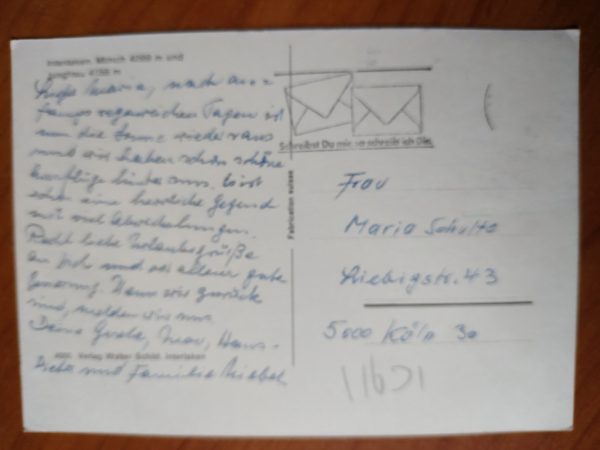 Interlaken, Mönch 4099 m und
Jungfrau 4158 m
Liebe Maria, nach an-
fangs regenreichen Tagen ist
nun die Sonne wieder raus
und wir haben schon schöne
Ausflüge hinter uns. Es ist
schon eine herrliche Gegend
mit viel Abwechslungen.
Recht liebe Urlaubsgrüße
an Dich und vor allem gute
Besserung. Wenn wir zurück
sind, melden wir uns.
Deine Greta, Max, Hans-
4001 Verlag Walter Schild, Interlaken
Dieter und Familie Niebel
Fabrication suisse
Schreibst Du mir, so schreib ich Dir.
Frau
Maria Schulte
Liebigstr. 43
5000 Köln 30